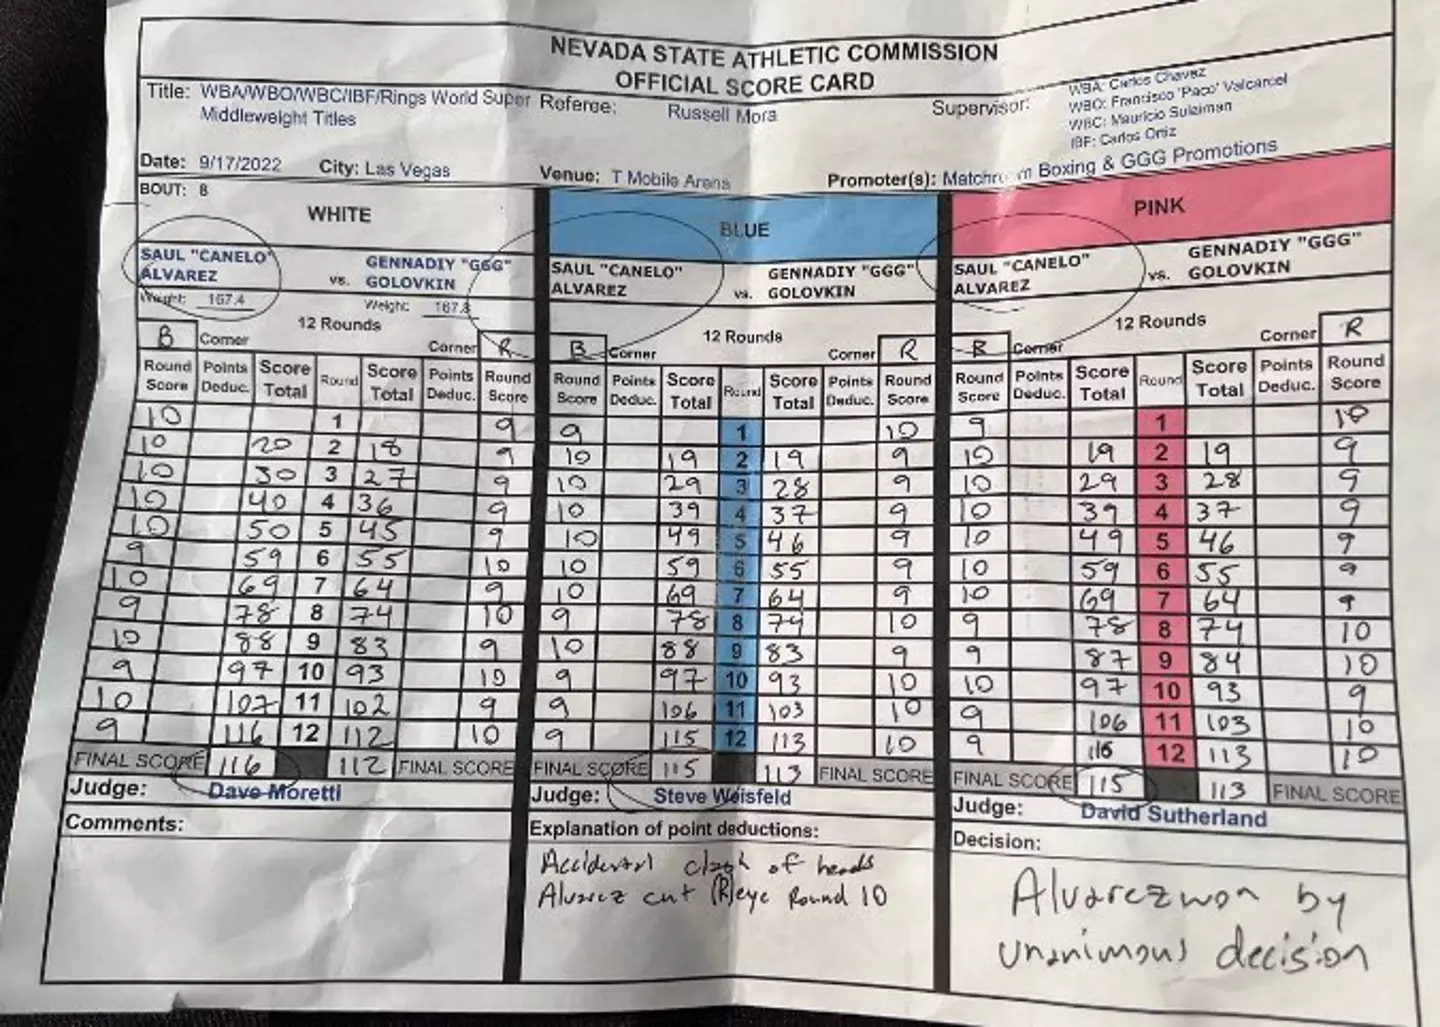 NEVADA STATE ATHLETIC COMMISSION
OFFICIAL SCORE CARD
Title: WBA/WBO/WBC/IBF/Rings World Super Middleweight Titles
Referee: Russell Mora
Supervisor: WBA: Carlos Chavez
WBO: Francisco 'Paco' Valcarcel
WBC: Mauricio Sulaiman
IBF: Carlos Ortiz
Date: 9/17/2022 City: Las Vegas Venue: T Mobile Arena Promoter(s): Matchroom Boxing & GGG Promotions
BOUT: 8
WHITE BLUE PINK
SAUL "CANELO" ALVAREZ vs. GENNADIY "GGG" GOLOVKIN SAUL "CANELO" ALVAREZ vs. GENNADIY "GGG" GOLOVKIN SAUL "CANELO" ALVAREZ vs. GENNADIY "GGG" GOLOVKIN
Weight: 167.4 Weight: 167.8
12 Rounds 12 Rounds 12 Rounds
B Corner Corner R B Corner Corner R B Corner Corner R
Round Score Points Deduc. Score Total Round Score Total Points Deduc. Round Score Round Score Points Deduc. Score Total Round Score Total Points Deduc. Round Score Round Score Points Deduc. Score Total Round Score Total Points Deduc. Round Score
10 1 9 9 1 10 9 1 10
10 20 2 18 9 10 19 2 19 9 10 19 2 19 9
10 30 3 27 9 10 29 3 28 9 10 29 3 28 9
10 40 4 36 9 10 39 4 37 9 10 39 4 37 9
10 50 5 45 9 10 49 5 46 9 10 49 5 46 9
9 59 6 55 10 10 59 6 55 9 10 59 6 55 9
10 69 7 64 9 10 69 7 64 9 10 69 7 64 9
9 78 8 74 10 9 78 8 74 10 9 78 8 74 10
10 88 9 83 9 10 88 9 83 9 9 87 9 84 10
9 97 10 93 10 9 97 10 93 10 10 97 10 93 9
10 107 11 102 9 9 106 11 103 10 9 106 11 103 10
9 116 12 112 10 9 115 12 113 10 9 116 12 113 10
FINAL SCORE 116 112 FINAL SCORE FINAL SCORE 115 113 FINAL SCORE FINAL SCORE 115 113 FINAL SCORE
Judge: Dave Moretti Judge: Steve Weisfeld Judge: David Sutherland
Comments: Explanation of point deductions: Decision:
Accidental clash of heads
Alvarez cut (R) eye Round 10
Alvarez won by
unanimous decision